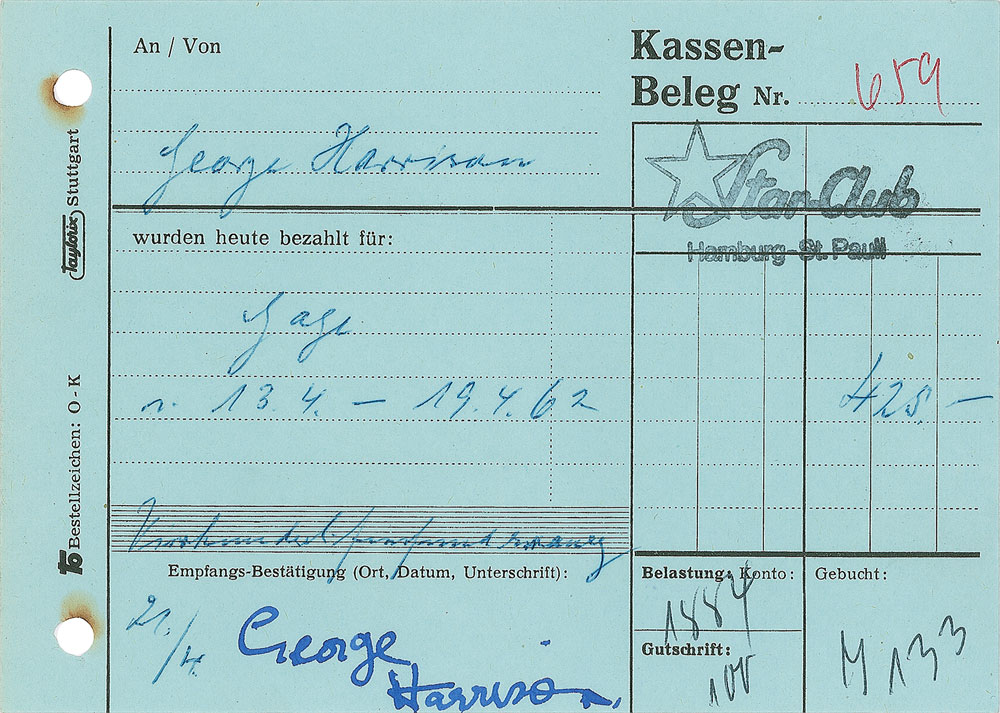 An / Von
Kassen-
Beleg Nr. 659
George Harrison
Star-Club
Hamburg-St. Pauli
wurden heute bezahlt für:
Gage
v. 13.4. – 19.4.62
425 –
Vierhundertfünfundzwanzig
Empfangs-Bestätigung (Ort, Datum, Unterschrift):
Belastung: Konto:
Gebucht:
1884
George
Harrison
Gutschrift:
100
133
Taylorix Stuttgart
Bestellzeichen: O - K